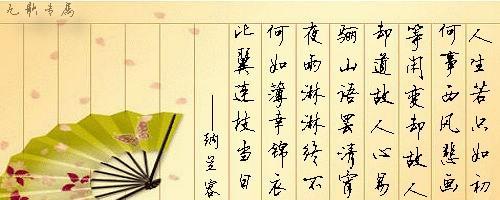 人生若只如初
何事西风悲画
等闲变却故人
却道故人心易
骊山语罢清宵
夜雨淋淋终不
何如薄幸锦衣
比翼连枝当日
——纳兰容
九歌专属